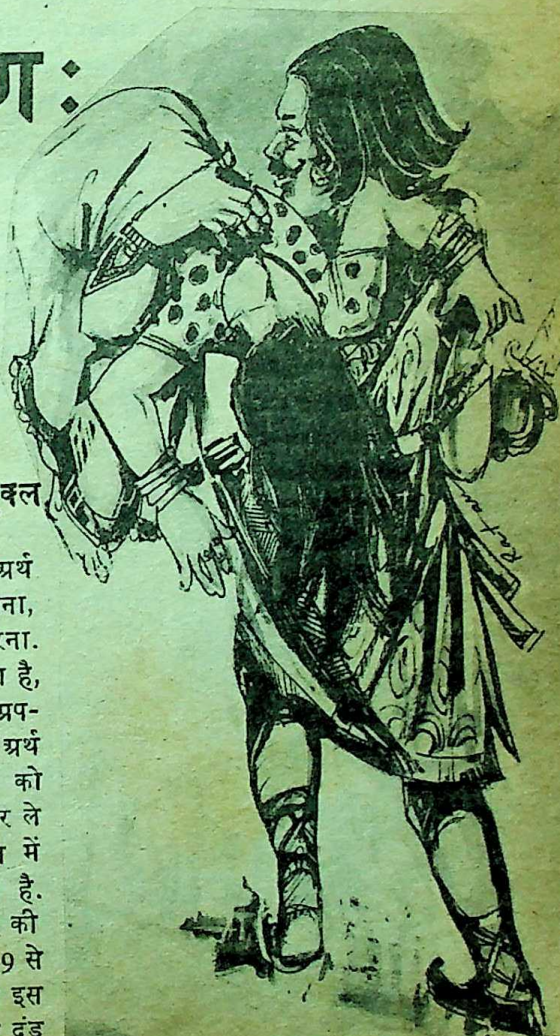 ण :
क्ल
अर्थ
ना,
रना.
ा है,
अप-
अर्थ
को
र ले
ा में
है.
की
9 से
इस
दंड
Ratan